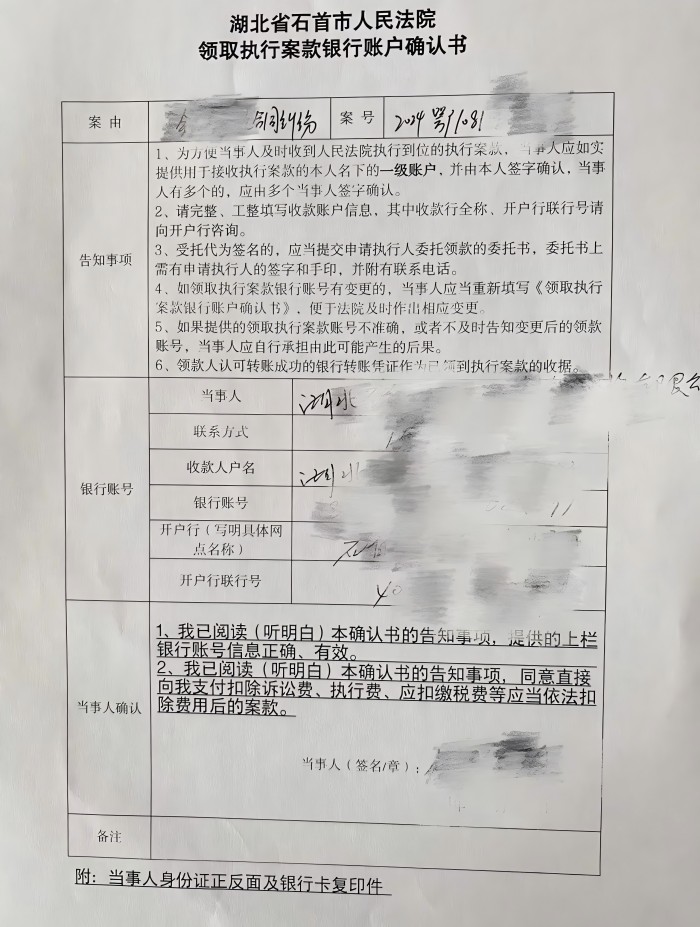 湖北省石首市人民法院
领取执行案款银行账户确认书
案由 合同纠纷 案号 2024 鄂1081
告知事项
1、为方便当事人及时收到人民法院执行到位的执行案款，当事人应如实
提供用于接收执行案款的本人名下的一级账户，并由本人签字确认，当事
人有多个的，应由多个当事人签字确认。
2、请完整、工整填写收款账户信息，其中收款行全称、开户行联行号请
向开户行咨询。
3、受托代为签名的，应当提交申请执行人委托领款的委托书，委托书上
需有申请执行人的签字和手印，并附有联系电话。
4、如领取执行案款银行账号有变更的，当事人应当重新填写《领取执行
案款银行账户确认书》，便于法院及时作出相应变更。
5、如果提供的领取执行案款账号不准确，或者不及时告知变更后的领款
账号，当事人应自行承担由此可能产生的后果。
6、领款人认可转账成功的银行转账凭证作为已领到执行案款的收据。
银行账号
当事人 湖北
联系方式
收款人户名 湖北
银行账号 11
开户行（写明具体网
点名称） 石
开户行联行号 40
当事人确认
1、我已阅读（听明白）本确认书的告知事项，提供的上栏
银行账号信息正确、有效。
2、我已阅读（听明白）本确认书的告知事项，同意直接
向我支付扣除诉讼费、执行费、应扣缴税费等应当依法扣
除费用后的案款。
当事人（签名/章）：
备注
附：当事人身份证正反面及银行卡复印件